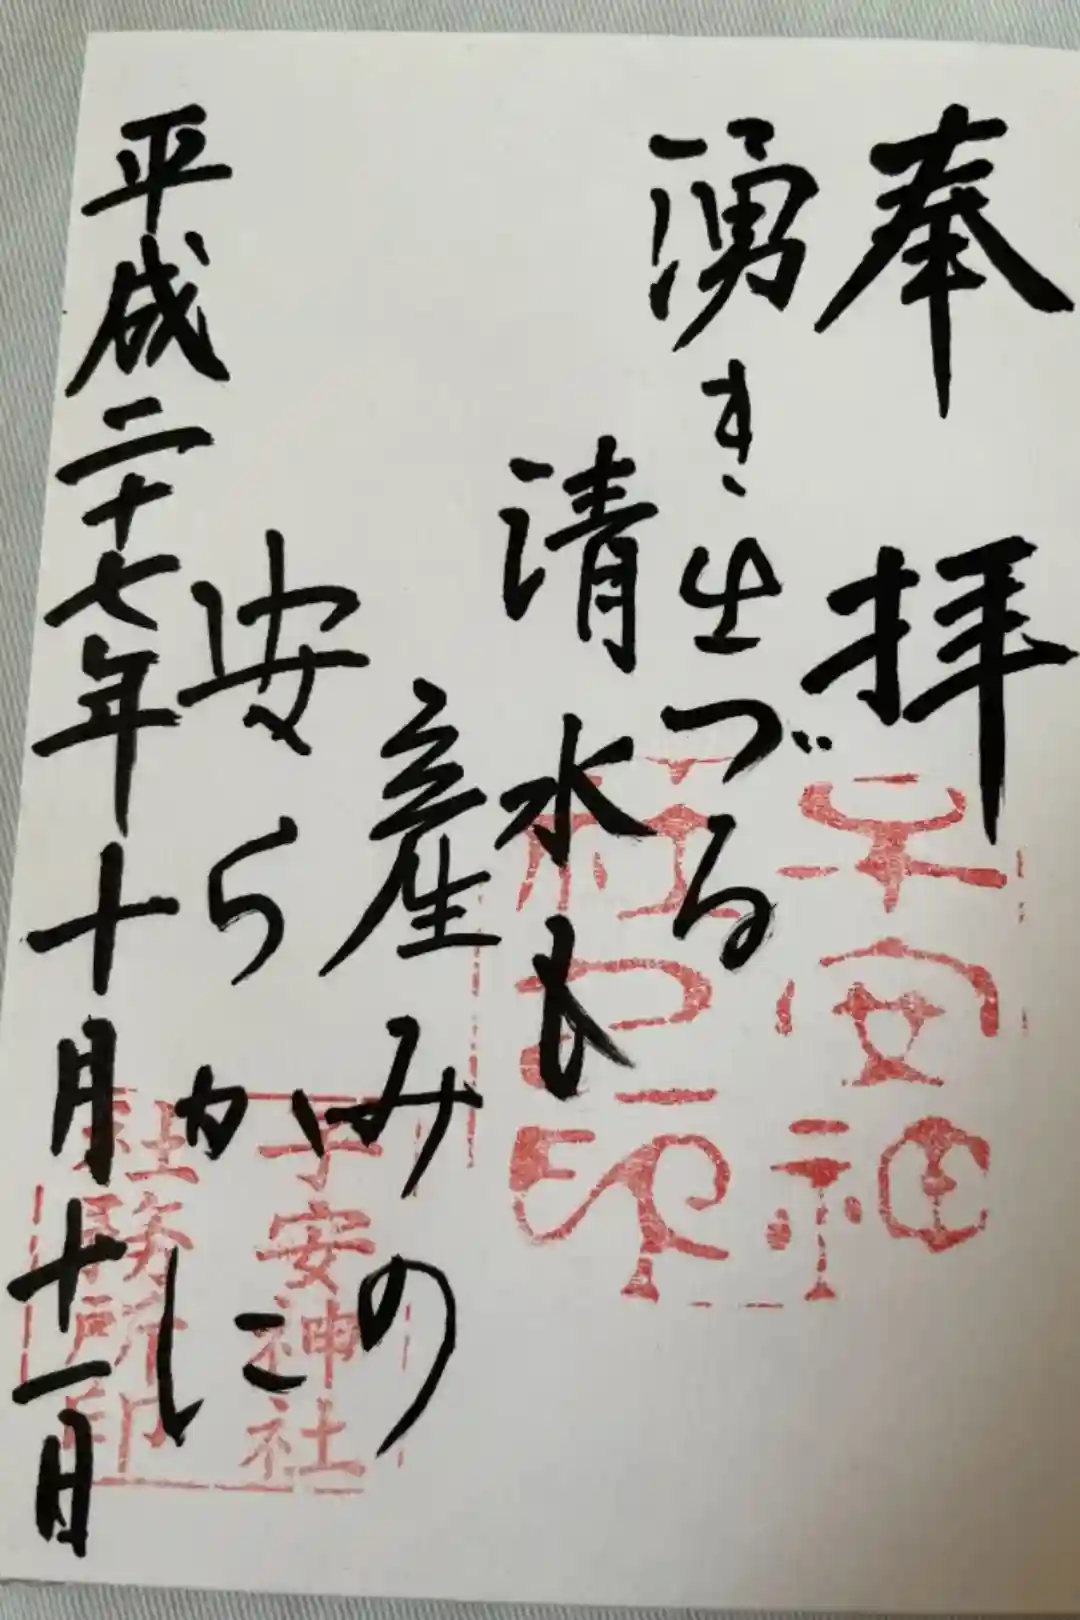 奉拝
湧き出づる
清水も
産みの
安らかに
平成二十七年十月十一日
子安神
社之印
子安神社
社務所印